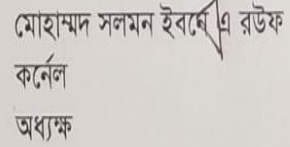 মোহাম্মদ সলমন ইবনে এ রউফ
কর্নেল
অধ্যক্ষ